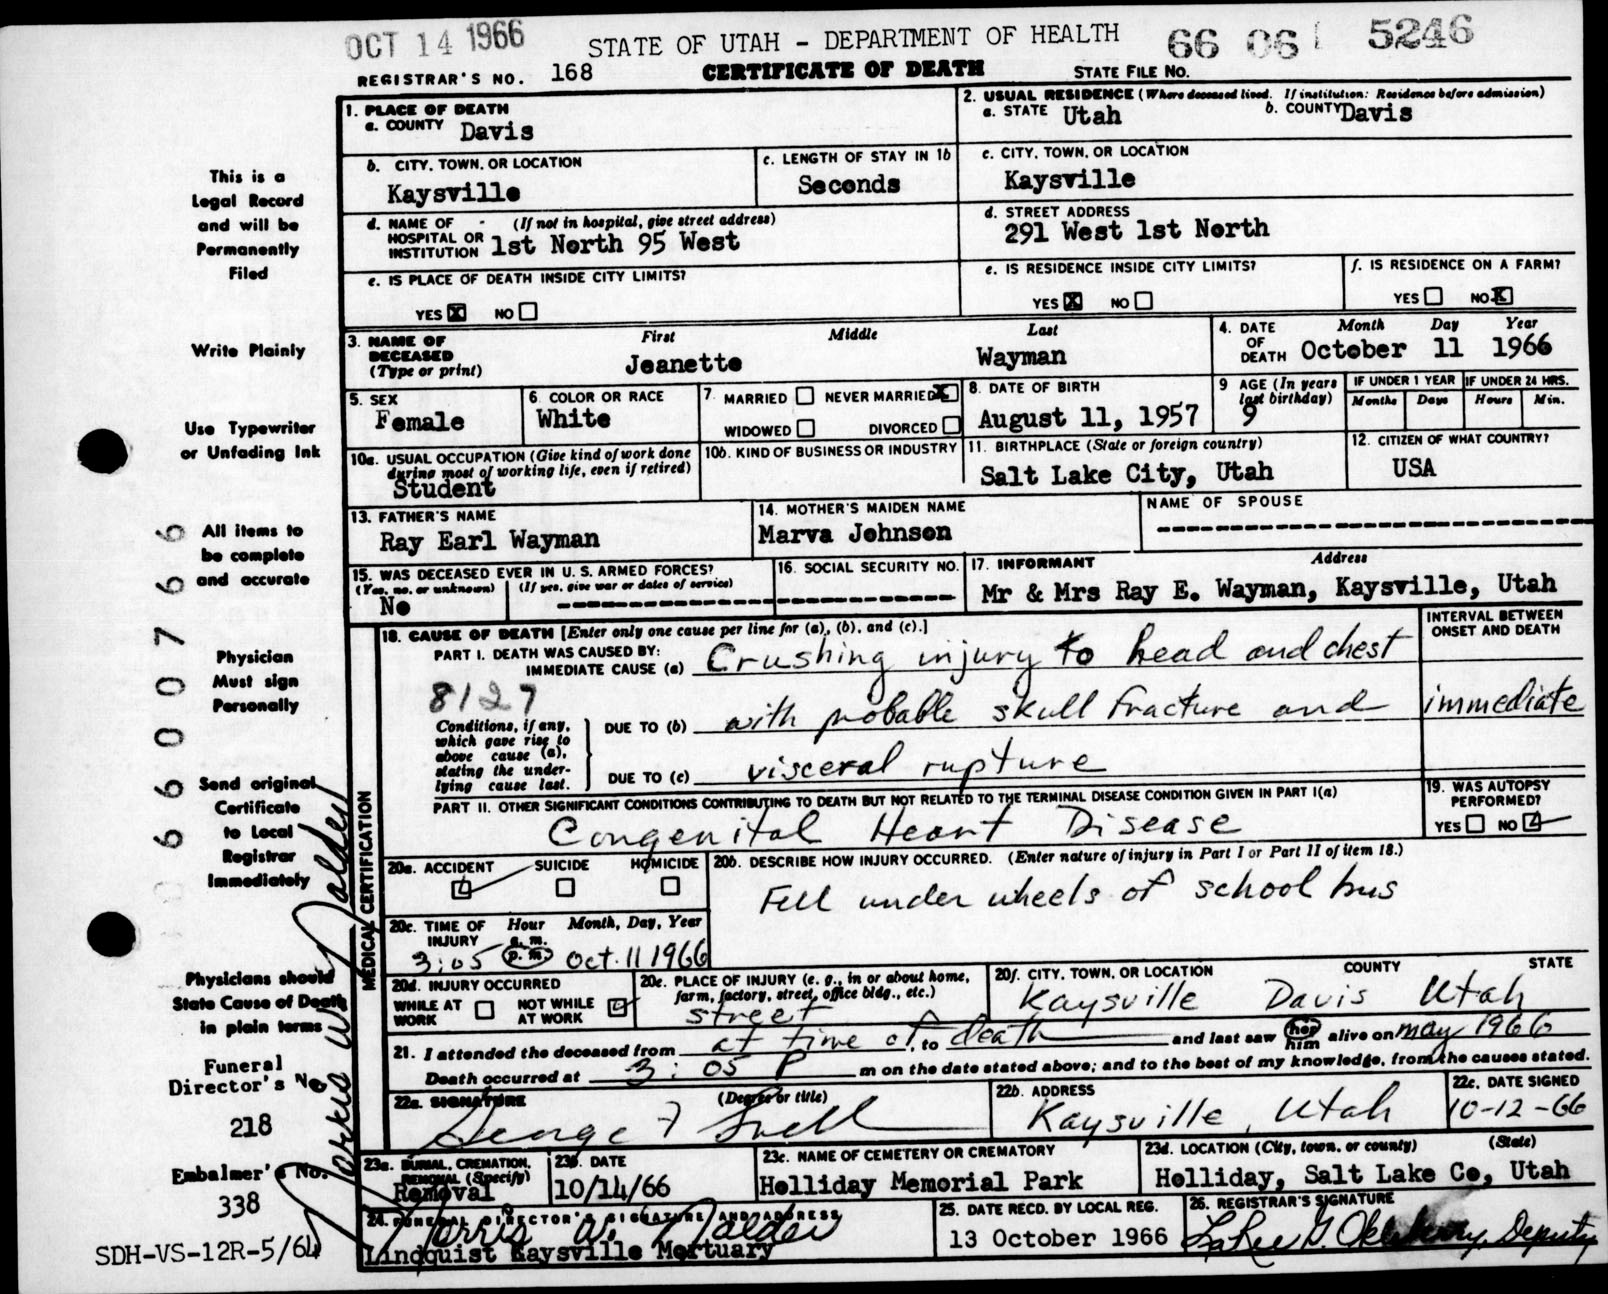 OCT 14 1966
STATE OF UTAH - DEPARTMENT OF HEALTH
66 06 5246
REGISTRAR'S NO. 168
CERTIFICATE OF DEATH
STATE FILE NO.
1. PLACE OF DEATH
a. COUNTY Davis
2. USUAL RESIDENCE (Where deceased lived. If institution: Residence before admission)
a. STATE Utah b. COUNTY Davis
b. CITY, TOWN, OR LOCATION
Kaysville
c. LENGTH OF STAY IN 1b
Seconds
c. CITY, TOWN, OR LOCATION
Kaysville
d. NAME OF (If not in hospital, give street address)
HOSPITAL OR
INSTITUTION 1st North 95 West
d. STREET ADDRESS
291 West 1st North
e. IS PLACE OF DEATH INSIDE CITY LIMITS?
YES X NO
e. IS RESIDENCE INSIDE CITY LIMITS?
YES X NO
f. IS RESIDENCE ON A FARM?
YES NO X
3. NAME OF DECEASED
(Type or print)
First Middle Last
Jeanette Wayman
4. DATE OF DEATH
Month Day Year
October 11 1966
5. SEX
Female
6. COLOR OR RACE
White
7. MARRIED NEVER MARRIED X
WIDOWED DIVORCED
8. DATE OF BIRTH
August 11, 1957
9 AGE (In years last birthday)
9
IF UNDER 1 YEAR
Months Days
IF UNDER 24 HRS.
Hours Min.
10a. USUAL OCCUPATION (Give kind of work done
during most of working life, even if retired)
Student
10b. KIND OF BUSINESS OR INDUSTRY
11. BIRTHPLACE (State or foreign country)
Salt Lake City, Utah
12. CITIZEN OF WHAT COUNTRY?
USA
13. FATHER'S NAME
Ray Earl Wayman
14. MOTHER'S MAIDEN NAME
Marva Johnson
NAME OF SPOUSE
15. WAS DECEASED EVER IN U. S. ARMED FORCES?
(Yes, no, or unknown) (If yes, give war or dates of service)
No
16. SOCIAL SECURITY NO.
17. INFORMANT Address
Mr & Mrs Ray E. Wayman, Kaysville, Utah
MEDICAL CERTIFICATION
18. CAUSE OF DEATH [Enter only one cause per line for (a), (b), and (c).]
INTERVAL BETWEEN
ONSET AND DEATH
PART I. DEATH WAS CAUSED BY:
IMMEDIATE CAUSE (a) Crushing injury to head and chest
8127
Conditions, if any,
which gave rise to
above cause (a),
stating the under-
lying cause last.
DUE TO (b) with probable skull fracture and
immediate
DUE TO (c) visceral rupture
PART II. OTHER SIGNIFICANT CONDITIONS CONTRIBUTING TO DEATH BUT NOT RELATED TO THE TERMINAL DISEASE CONDITION GIVEN IN PART I(a)
Congenital Heart Disease
19. WAS AUTOPSY
PERFORMED?
YES NO
20a. ACCIDENT SUICIDE HOMICIDE
20b. DESCRIBE HOW INJURY OCCURRED. (Enter nature of injury in Part I or Part II of item 18.)
Fell under wheels of school bus
20c. TIME OF INJURY
Hour Month, Day, Year
a. m.
3:05 p. m. Oct. 11 1966
20d. INJURY OCCURRED
WHILE AT WORK NOT WHILE AT WORK
20e. PLACE OF INJURY (e. g., in or about home,
farm, factory, street, office bldg., etc.)
street
20f. CITY, TOWN, OR LOCATION COUNTY STATE
Kaysville Davis Utah
21. I attended the deceased from at time of, to death and last saw her him alive on may 1966
Death occurred at 3:05 P m on the date stated above; and to the best of my knowledge, from the causes stated.
22a. SIGNATURE (Degree or title)
George F Snell
22b. ADDRESS
Kaysville, Utah
22c. DATE SIGNED
10-12-66
23a. BURIAL, CREMATION,
REMOVAL (Specify)
Removal
23b. DATE
10/14/66
23c. NAME OF CEMETERY OR CREMATORY
Holliday Memorial Park
23d. LOCATION (City, town, or county) (State)
Holliday, Salt Lake Co, Utah
24. FUNERAL DIRECTOR'S SIGNATURE AND ADDRESS
Norris W. Nalder
Lindquist Kaysville Mortuary
25. DATE RECD. BY LOCAL REG.
13 October 1966
26. REGISTRAR'S SIGNATURE
Deputy
This is a
Legal Record
and will be
Permanently
Filed
Write Plainly
Use Typewriter
or Unfading Ink
All items to
be complete
and accurate
Physician
Must sign
Personally
Send original
Certificate
to Local
Registrar
Immediately
Physicians should
State Cause of Death
in plain terms
Funeral
Director's No
218
Embalmer's No.
338
SDH-VS-12R-5/64
66007666
Norris W. Nalder